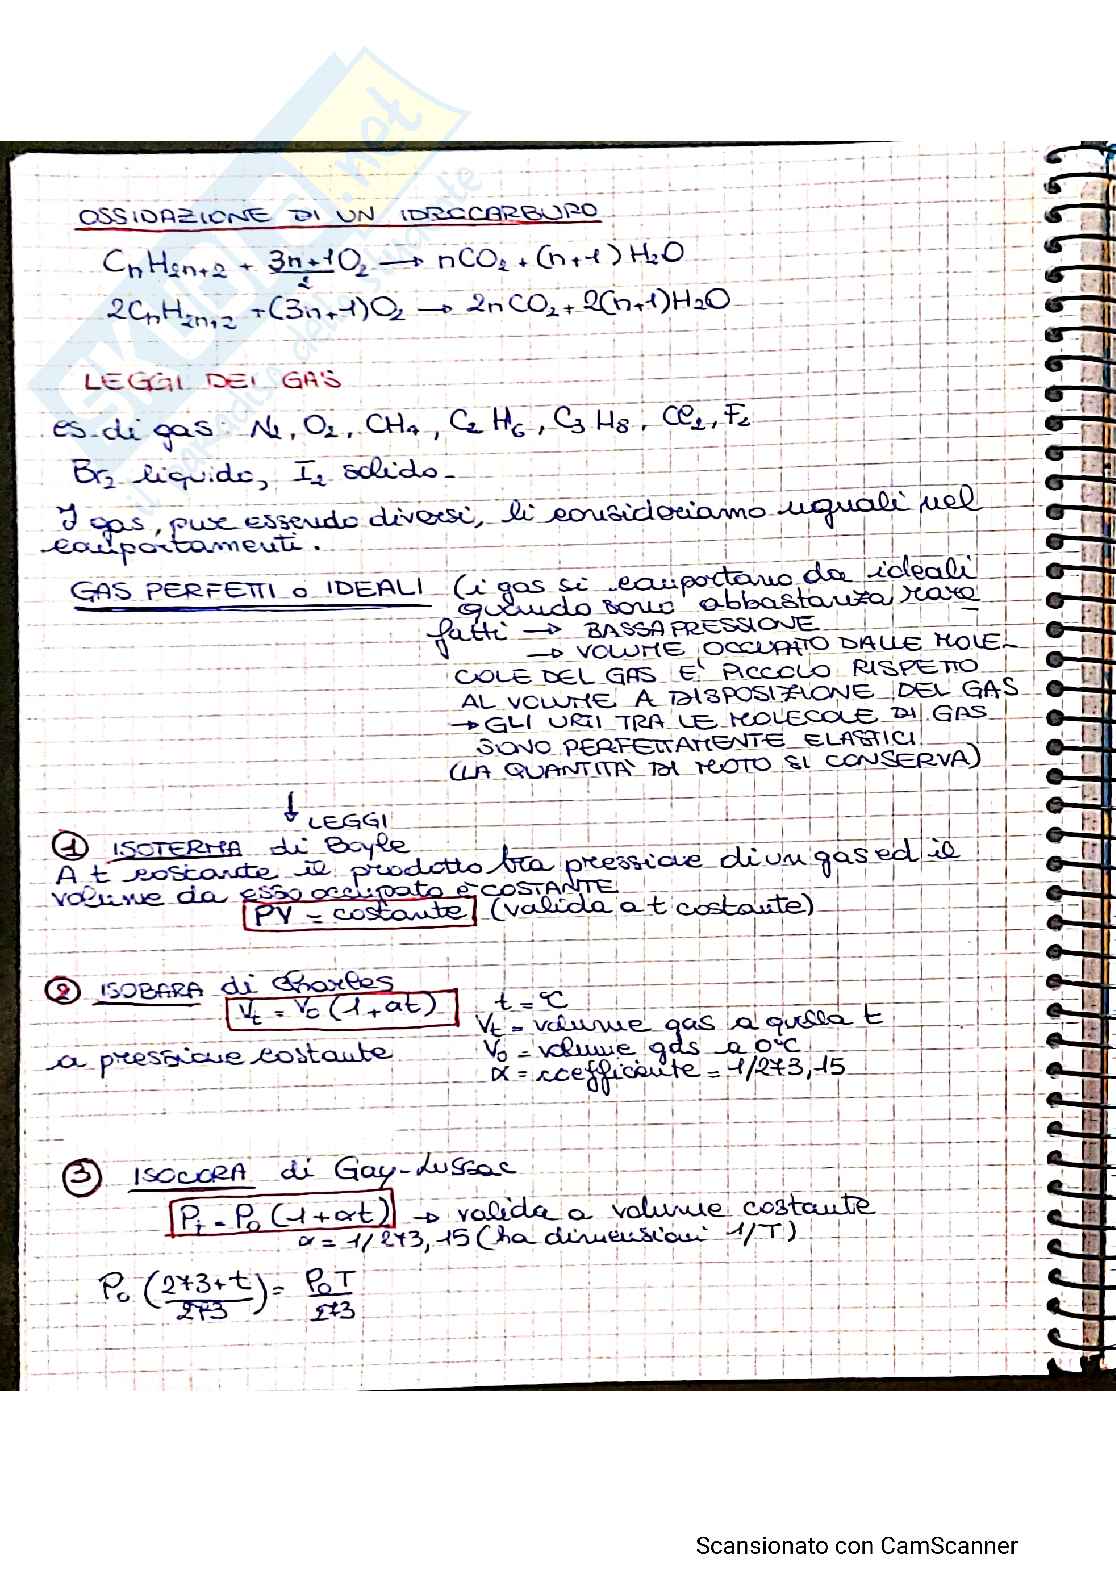 OSSIDAZIONE DI UN IDROCARBURO
CnH2n+2 + 3n+1/2 O2 → nCO2 + (n+1)H2O
2CnH2n+2 + (3n+1)O2 → 2nCO2 + 2(n+1)H2O
LEGGI DEI GAS
es. di gas: N2, O2, CH4, C2H6, C3H8, Cl2, F2
Br2 liquido, I2 solido.
I gas, pur essendo diversi, li consideriamo uguali nel
comportamenti.
GAS PERFETTI o IDEALI (i gas si comportano da ideali
quando sono abbastanza rare
fatti → BASSA PRESSIONE
→ VOLUME OCCUPATO DALLE MOLE-
COLE DEL GAS E' PICCOLO RISPETTO
AL VOLUME A DISPOSIZIONE DEL GAS
→ GLI URTI TRA LE MOLECOLE DI GAS
SONO PERFETTAMENTE ELASTICI
(LA QUANTITA' DI MOTO SI CONSERVA)
↓ LEGGI
① ISOTERMA di Boyle
A t costante il prodotto tra pressione di un gas ed il
volume da esso occupato è COSTANTE
PV = costante (valida a t costante)
② ISOBARA di Charles
Vt = V0 (1+αt)
a pressione costante
t = °C
Vt = volume gas a quella t
V0 = volume gas a 0°C
α = coefficiente = 1/273,15
③ ISOCORA di Gay-Lussac
Pt = P0 (1+αt) → valida a volume costante
α = 1/273,15 (ha dimensioni 1/T)
P0 (273+t/273) = P0T/273
Scansionato con CamScanner
SKUOLA.net